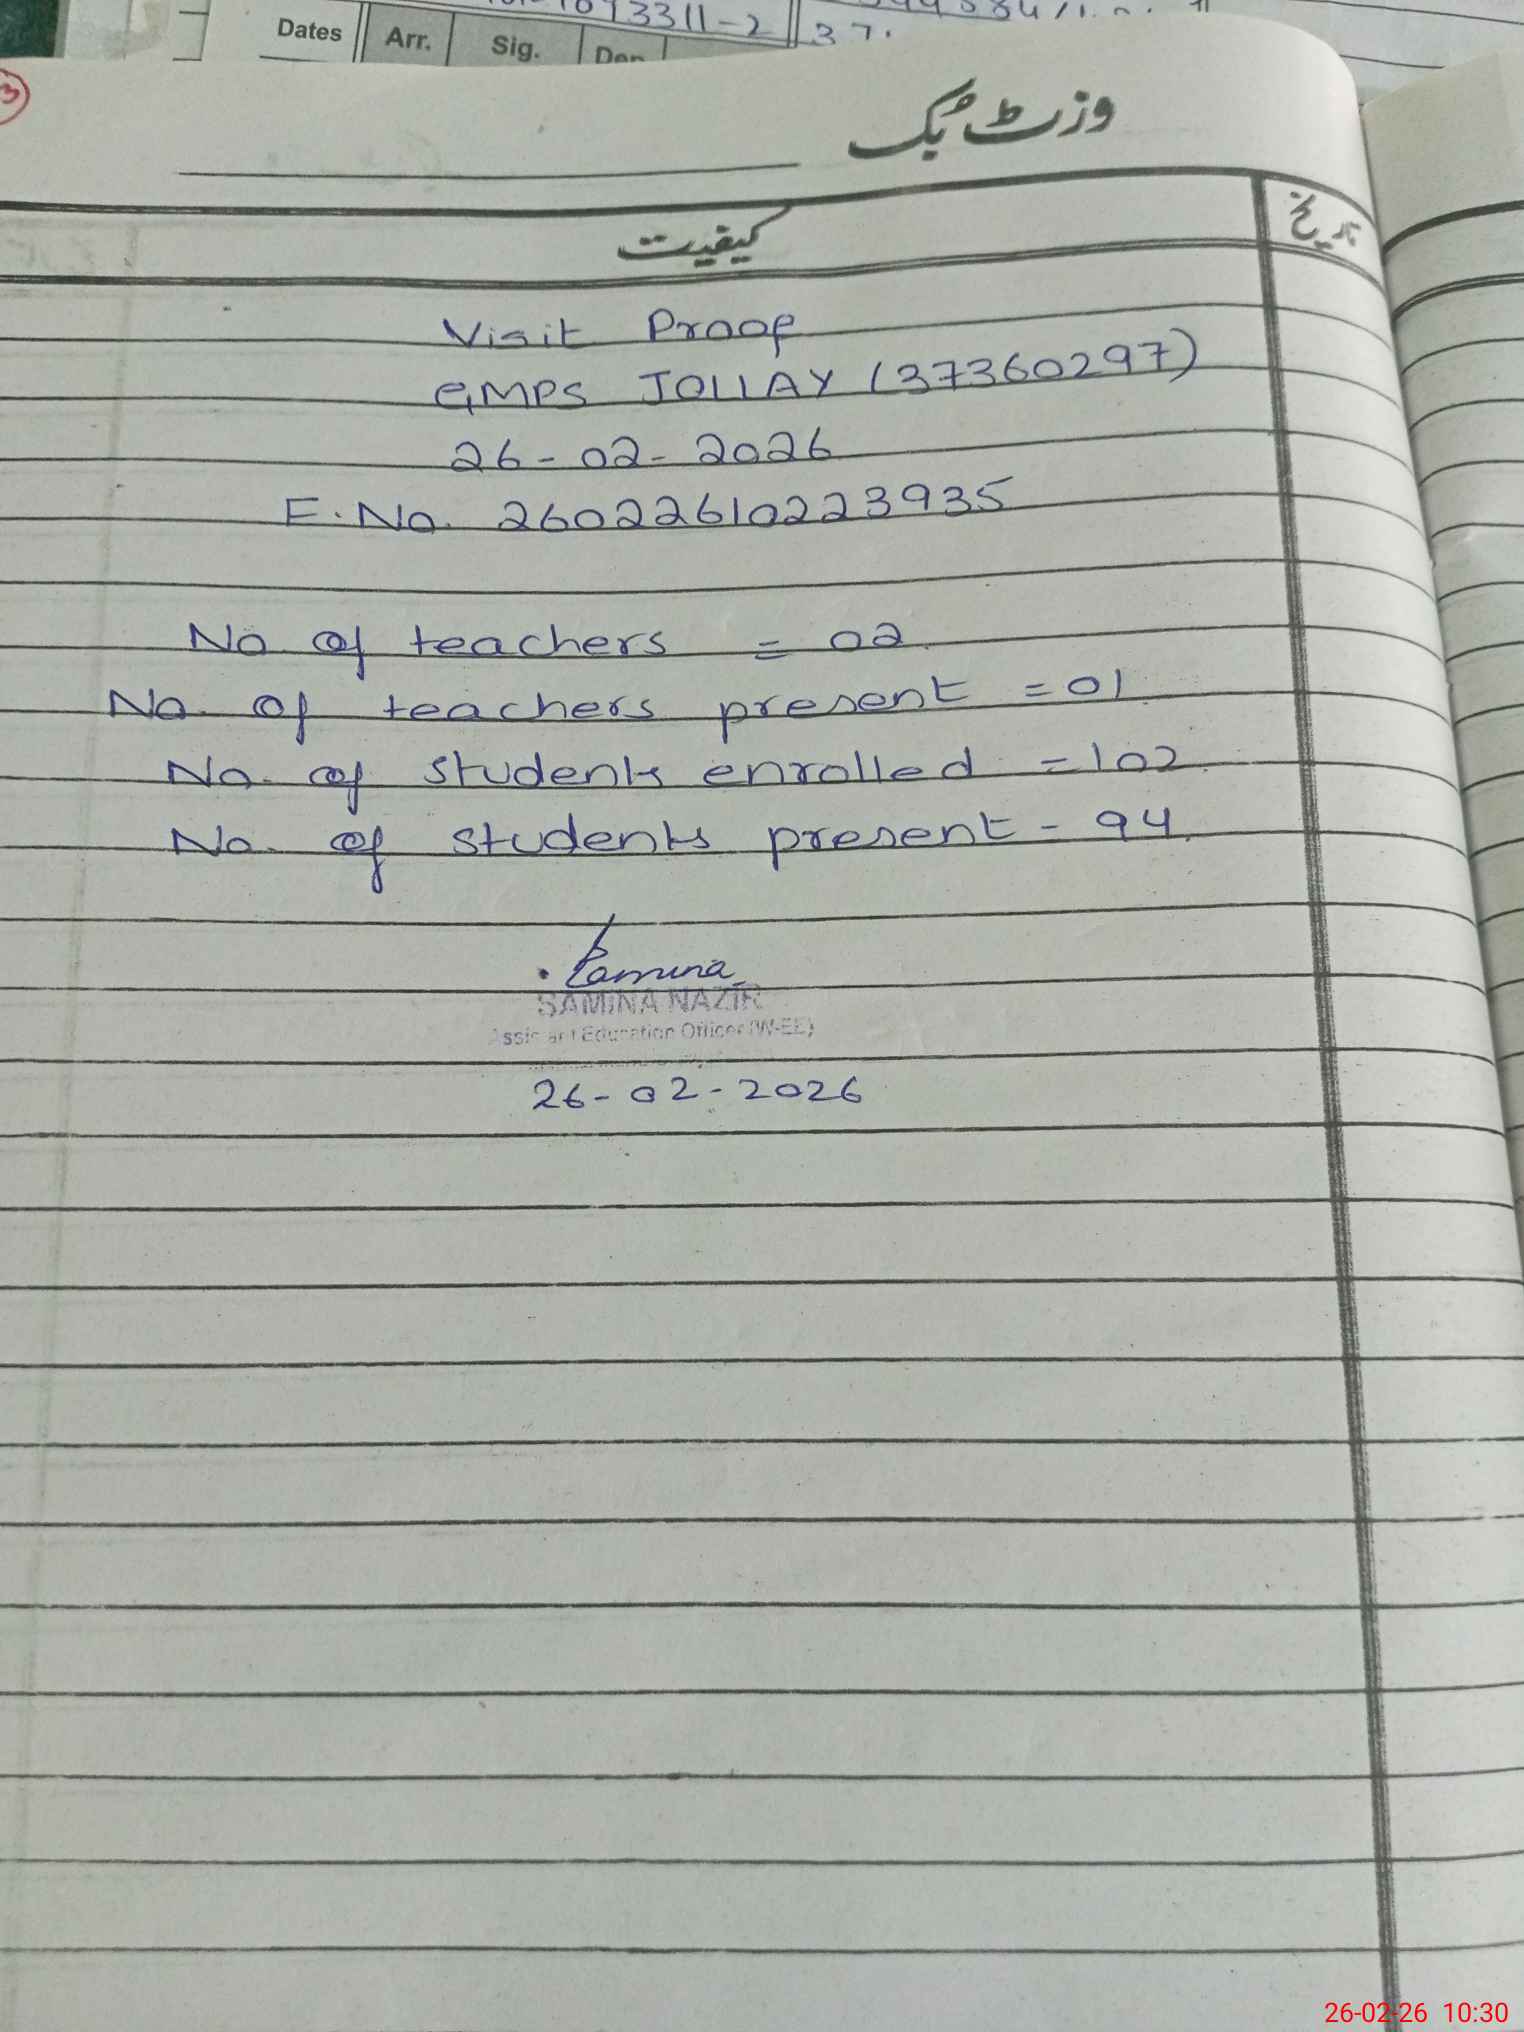 1093311-2 37.
Dates Arr. Sig. Dep
3
وزٹ بک
کیفیت تاریخ
Visit Proof
GMPS JOLLAY (37360297)
26-02-2026
E.No. 26022610223935
No of teachers = 02
No. of teachers present = 01
No. of students enrolled = 102
No. of students present - 94
Samina
SAMINA NAZIR
Assistant Education Officer (W-EE)
26-02-2026
26-02-26 10:30